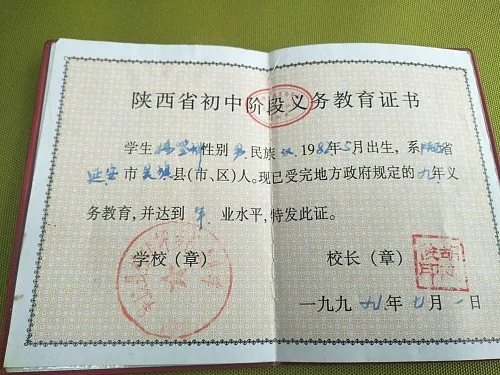 陕西省初中阶段义务教育证书
学生 性别 男 民族 汉 1982年5月出生，系陕西省
延安市吴旗县(市、区)人。现已受完地方政府规定的九年义
务教育，并达到 毕 业水平，特发此证。
学校（章） 校长（章）
一九九九年七月一日